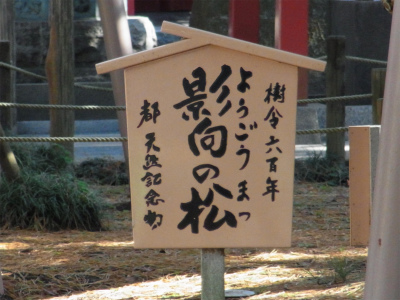 樹令六百年
ようごうまつ
影向の松
都 天然記念物